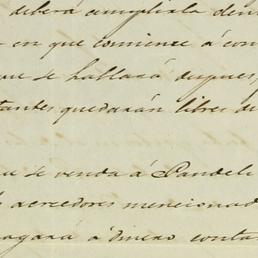 deberá ampliarla den
en que comience á con
que se hablará despues,
tantes quedarán libres de
ue se venda á Pandel
acreedores mencionad
agará á dinero conta